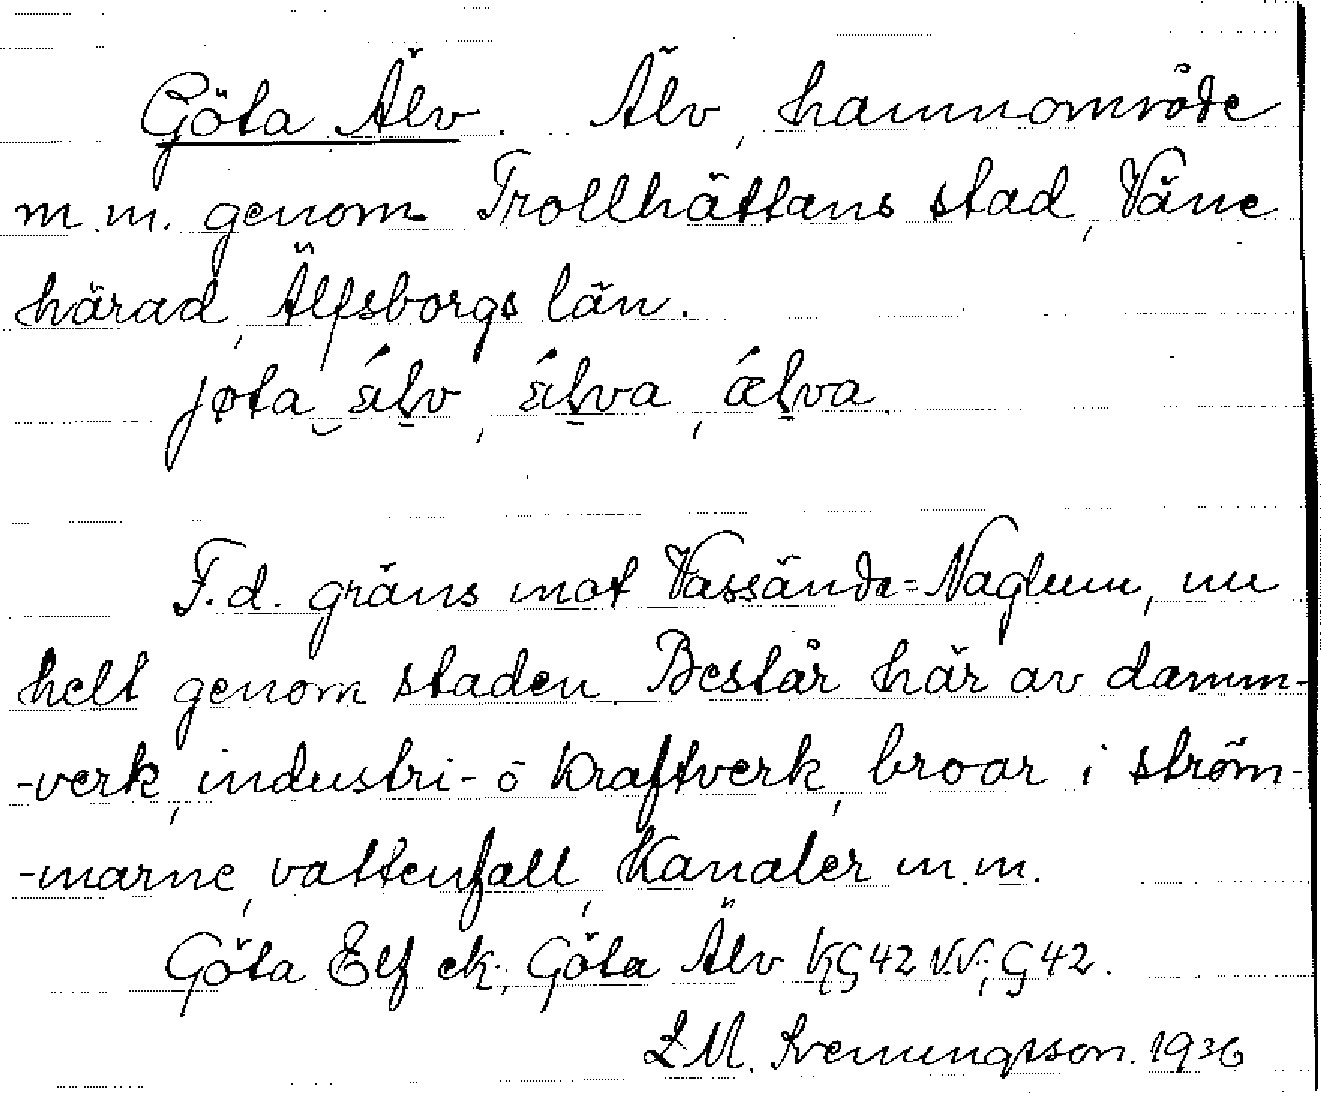 Göta Älv. Älv, hamnområde
m.m. genom Trollhättans stad, Väne
härad, Älfsborgs län.
jøta ä́lv, ä́lva, ǽlva
F.d. gräns mot Vassända=Naglum, nu
helt genom staden. Består här av damm-
-verk, industri- o kraftverk, broar i ström-
-marne, vattenfall, Kanaler m.m.
Göta Elf ek; Göta Älv KG 42 VV; G 42.
L M. Svenungsson. 1936